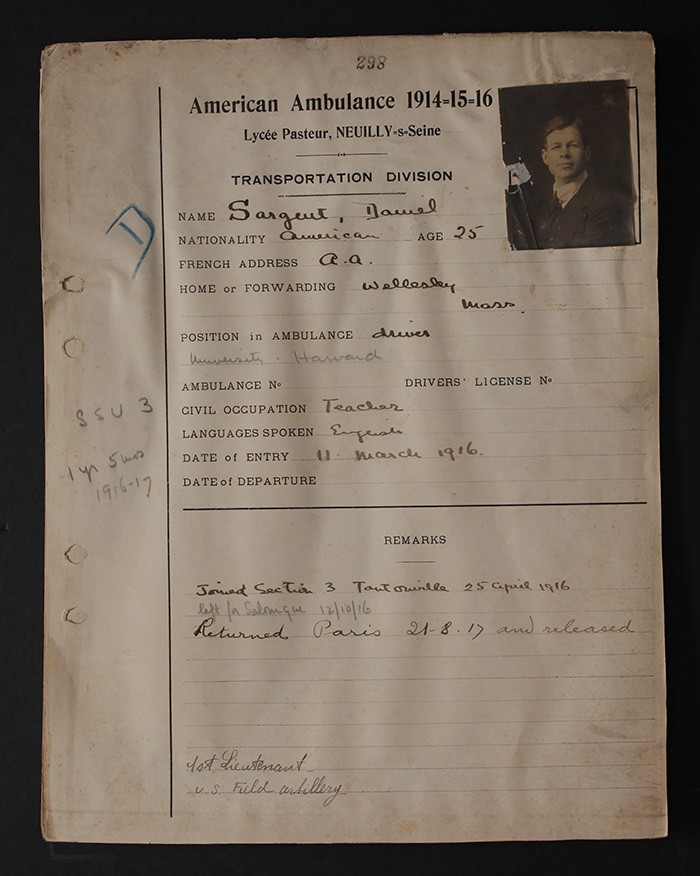 298
American Ambulance 1914=15=16
Lycée Pasteur, NEUILLY-s-Seine
TRANSPORTATION DIVISION
NAME Sargent, Daniel
NATIONALITY American AGE 25
FRENCH ADDRESS A.A.
HOME or FORWARDING Wellesley
Mass.
POSITION in AMBULANCE driver
University - Harvard
AMBULANCE No DRIVERS' LICENSE No
CIVIL OCCUPATION Teacher
LANGUAGES SPOKEN English
DATE of ENTRY 11 March 1916.
DATE of DEPARTURE
D
SSU 3
1 yr 5 mos
1916-17
REMARKS
Joined Section 3 Tantonville 25 April 1916
left for Salonique 12/10/16
Returned Paris 21-8.17 and released
1st Lieutenant
U.S. Field artillery